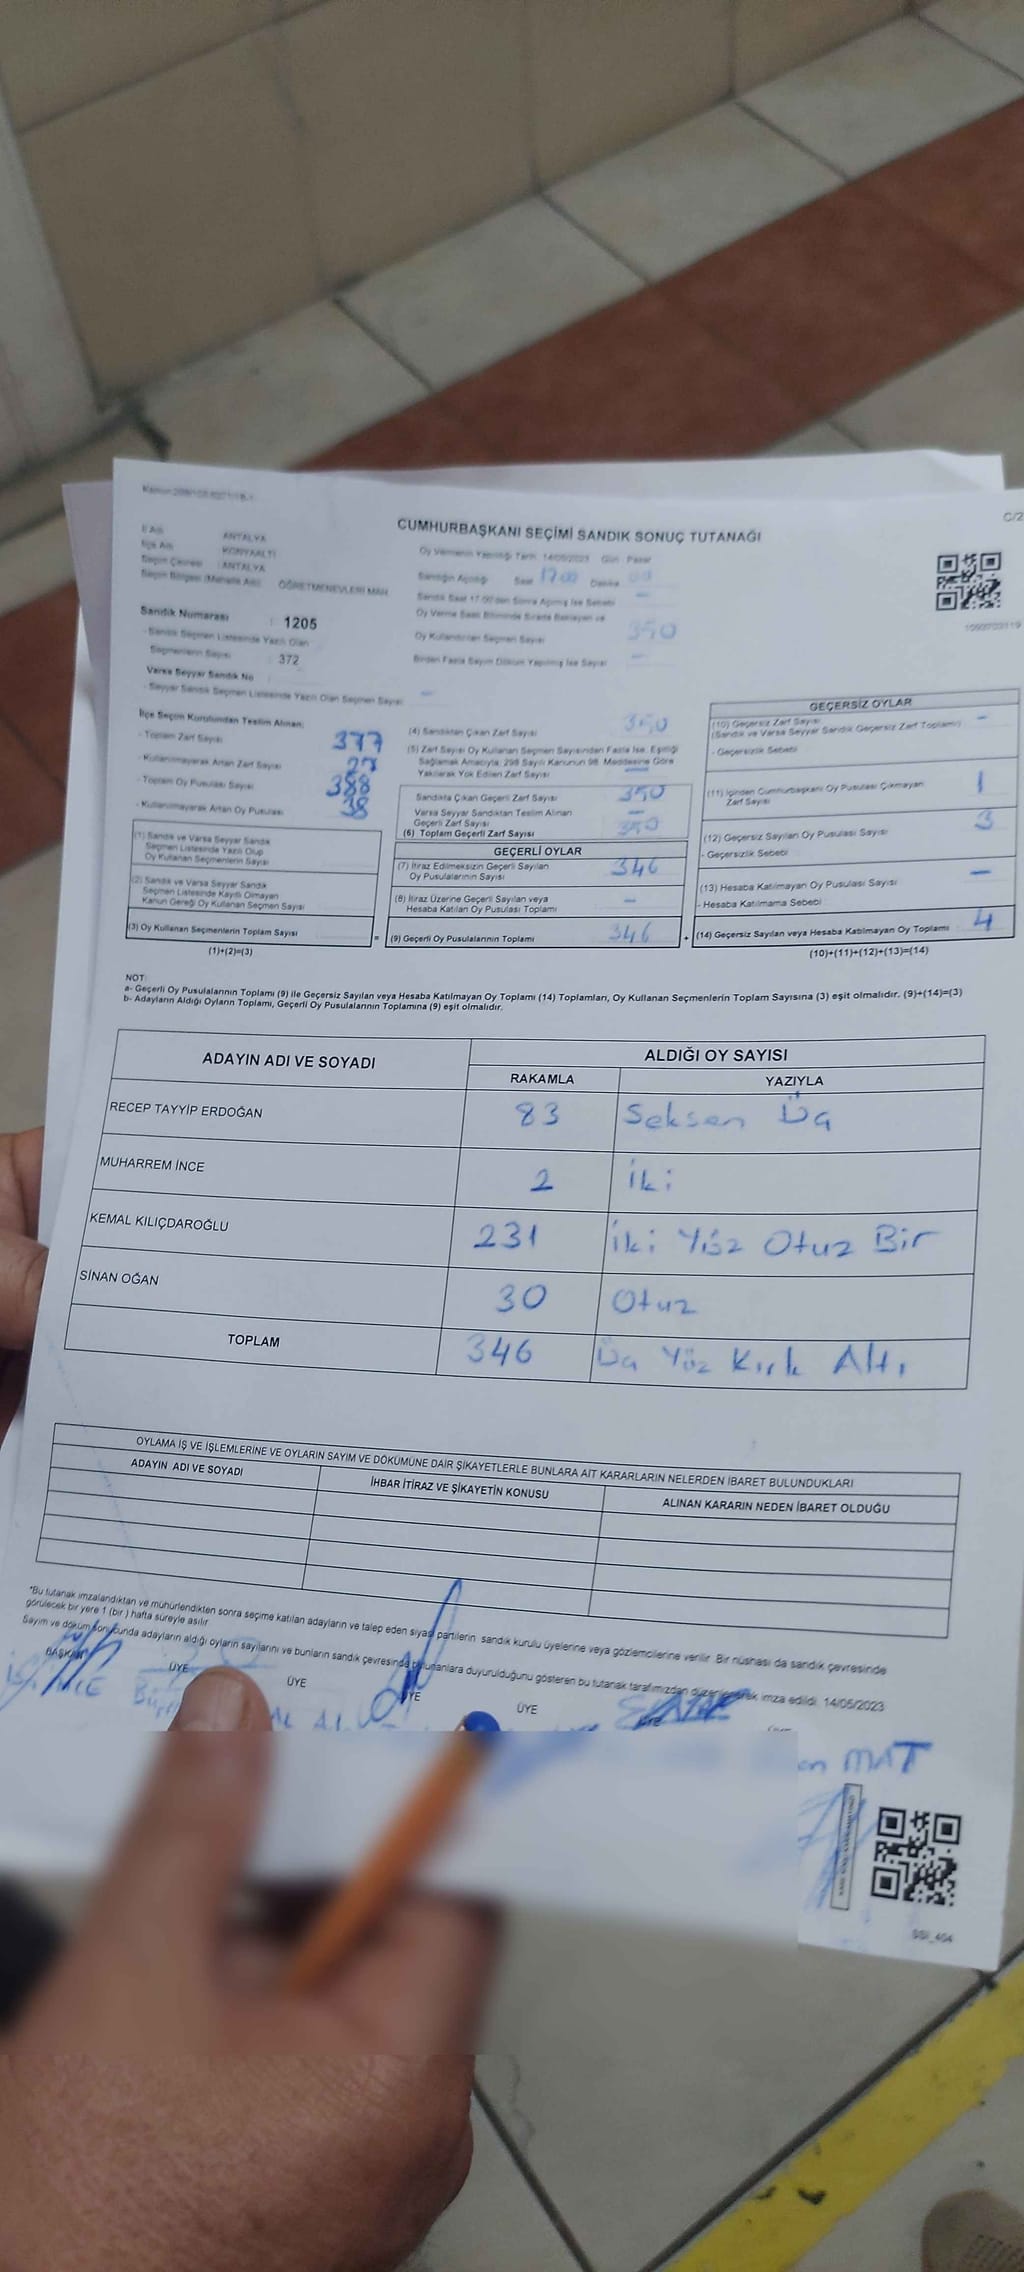 C/2
CUMHURBAŞKANI SEÇİMİ SANDIK SONUÇ TUTANAĞI
İl Adı ANTALYA
İlçe Adı KONYAALTI
Seçim Çevresi : ANTALYA
Seçim Bölgesi (Mahalle Adı) ÖĞRETMENEVLERİ MAH.
Sandık Numarası : 1205
- Sandık Seçmen Listesinde Yazılı Olan
Seçmenlerin Sayısı : 372
Varsa Seyyar Sandık No
- Seyyar Sandık Seçmen Listesinde Yazılı Olan Seçmen Sayısı -
Oy Vermenin Yapıldığı Tarih: 14/05/2023 Gün: Pazar
Sandığın Açıldığı Saat 17:00 Dakika
Sandık Saat 17:00'den Sonra Açılmış İse Sebebi -
Oy Verme Saati Bitiminde Sırada Bekleyen ve
Oy Kullandırılan Seçmen Sayısı 350
Birden Fazla Sayım Döküm Yapılmış İse Sayısı -
İlçe Seçim Kurulundan Teslim Alınan;
- Toplam Zarf Sayısı 377
- Kullanılmayarak Artan Zarf Sayısı 27
- Toplam Oy Pusulası Sayısı 388
- Kullanılmayarak Artan Oy Pusulası 38
(1) Sandık ve Varsa Seyyar Sandık
Seçmen Listesinde Yazılı Olup
Oy Kullanan Seçmenlerin Sayısı
(2) Sandık ve Varsa Seyyar Sandık
Seçmen Listesinde Kayıtlı Olmayan
Kanun Gereği Oy Kullanan Seçmen Sayısı
(3) Oy Kullanan Seçmenlerin Toplam Sayısı
(1)+(2)=(3)
(4) Sandıktan Çıkan Zarf Sayısı 350
(5) Zarf Sayısı Oy Kullanan Seçmen Sayısından Fazla İse, Eşitliği
Sağlamak Amacıyla; 298 Sayılı Kanunun 98. Maddesine Göre
Yakılarak Yok Edilen Zarf Sayısı -
Sandıkta Çıkan Geçerli Zarf Sayısı 350
Varsa Seyyar Sandıktan Teslim Alınan
Geçerli Zarf Sayısı -
(6) Toplam Geçerli Zarf Sayısı 350
GEÇERLİ OYLAR
(7) İtiraz Edilmeksizin Geçerli Sayılan
Oy Pusulalarının Sayısı 346
(8) İtiraz Üzerine Geçerli Sayılan veya
Hesaba Katılan Oy Pusulası Toplamı -
= (9) Geçerli Oy Pusulalarının Toplamı 346
GEÇERSİZ OYLAR
(10) Geçersiz Zarf Sayısı -
(Sandık ve Varsa Seyyar Sandık Geçersiz Zarf Toplamı)
- Geçersizlik Sebebi
(11) İçinden Cumhurbaşkanı Oy Pusulası Çıkmayan
Zarf Sayısı 1
(12) Geçersiz Sayılan Oy Pusulası Sayısı 3
- Geçersizlik Sebebi
(13) Hesaba Katılmayan Oy Pusulası Sayısı -
- Hesaba Katılmama Sebebi
+ (14) Geçersiz Sayılan veya Hesaba Katılmayan Oy Toplamı 4
(10)+(11)+(12)+(13)=(14)
NOT:
a- Geçerli Oy Pusulalarının Toplamı (9) ile Geçersiz Sayılan veya Hesaba Katılmayan Oy Toplamı (14) Toplamları, Oy Kullanan Seçmenlerin Toplam Sayısına (3) eşit olmalıdır. (9)+(14)=(3)
b- Adayların Aldığı Oyların Toplamı, Geçerli Oy Pusulalarının Toplamına (9) eşit olmalıdır.
ADAYIN ADI VE SOYADI ALDIĞI OY SAYISI
RAKAMLA YAZIYLA
RECEP TAYYİP ERDOĞAN 83 Seksen Üç
MUHARREM İNCE 2 İki
KEMAL KILIÇDAROĞLU 231 İki Yüz Otuz Bir
SİNAN OĞAN 30 Otuz
TOPLAM 346 Üç Yüz Kırk Altı
OYLAMA İŞ VE İŞLEMLERİNE VE OYLARIN SAYIM VE DÖKÜMÜNE DAİR ŞİKAYETLERLE BUNLARA AİT KARARLARIN NELERDEN İBARET BULUNDUKLARI
ADAYIN ADI VE SOYADI İHBAR İTİRAZ VE ŞİKAYETİN KONUSU ALINAN KARARIN NEDEN İBARET OLDUĞU
*Bu tutanak imzalandıktan ve mühürlendikten sonra seçime katılan adayların ve talep eden siyasi partilerin sandık kurulu üyelerine veya gözlemcilerine verilir. Bir nüshası da sandık çevresinde
görülecek bir yere 1 (bir) hafta süreyle asılır
Sayım ve döküm sonucunda adayların aldığı oyların sayılarını ve bunların sandık çevresinde bulunanlara duyurulduğunu gösteren bu tutanak tarafımızdan düzenlenerek imza edildi. 14/05/2023
BAŞKAN ÜYE ÜYE ÜYE ÜYE ÜYE
MAT
SSI_404